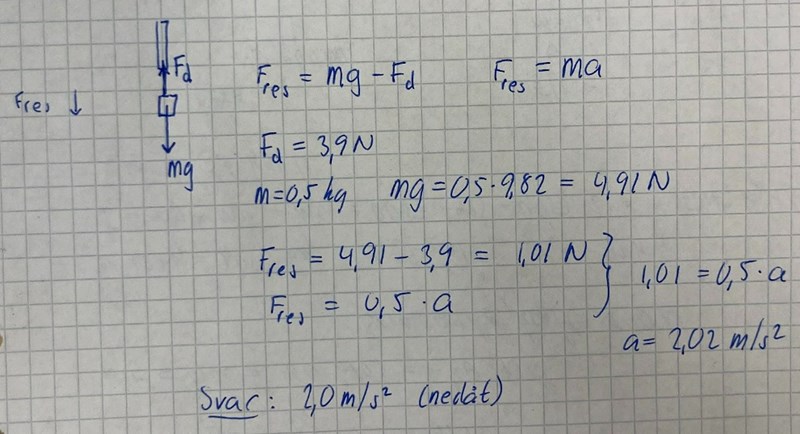 F_d
F_res ↓
mg
F_res = mg - F_d F_res = ma
F_d = 3,9 N
m = 0,5 kg mg = 0,5 · 9,82 = 4,91 N
F_res = 4,91 - 3,9 = 1,01 N
F_res = 0,5 · a
} 1,01 = 0,5 · a
a = 2,02 m/s²
Svar: 2,0 m/s² (nedåt)